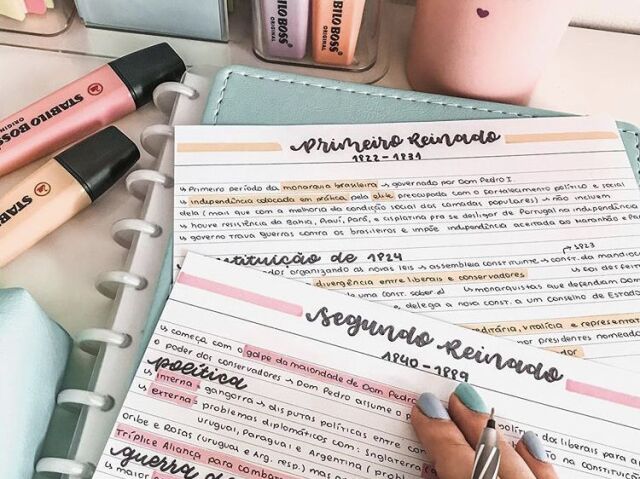 STABILO BOSS
ORIGINAL
STABILO BOSS
ORIGINAL
STABILO BOSS
ORIGINAL
STABILO
Primeiro Reinado
1822 - 1831
↳ Primeiro período da monarquia brasileira → governado por Dom Pedro I.
↳ independência colocada em prática pela elite preocupada com o fortalecimento político e social
dela (mais que com a melhoria da condição social das camadas populares) → não incluem
↳ houve resistência da Bahia, Piauí, Pará, e cisplatina pra se desligar de Portugal na independência
↳ governo trava guerras contra os brasileiros e impõe independência acertada ao Maranhão e
de 1824
1823
organizando as novas leis → assembleia constituinte → const. da mandioca
divergência entre liberais e conservadores
uma const. sobre
↳ monarquistas que defendiam Dom
e delega a nova const. a um Conselho de Estado
vitalícia e
por presidentes
Segundo Reinado
1840 - 1889
↳ começa com o golpe da maioridade de Dom Pedro
o poder dos conservadores → Dom Pedro assume o
dos liberais para
política
↳ interna: gangorra → disputas políticas entre
↳ externa: problemas diplomáticos com: Inglaterra
uruguai, Paraguai e Argentina
Oribe e Rosas (uruguai e Arg. resp.) mas
Tríplice Aliança para
guerra
↳ maior